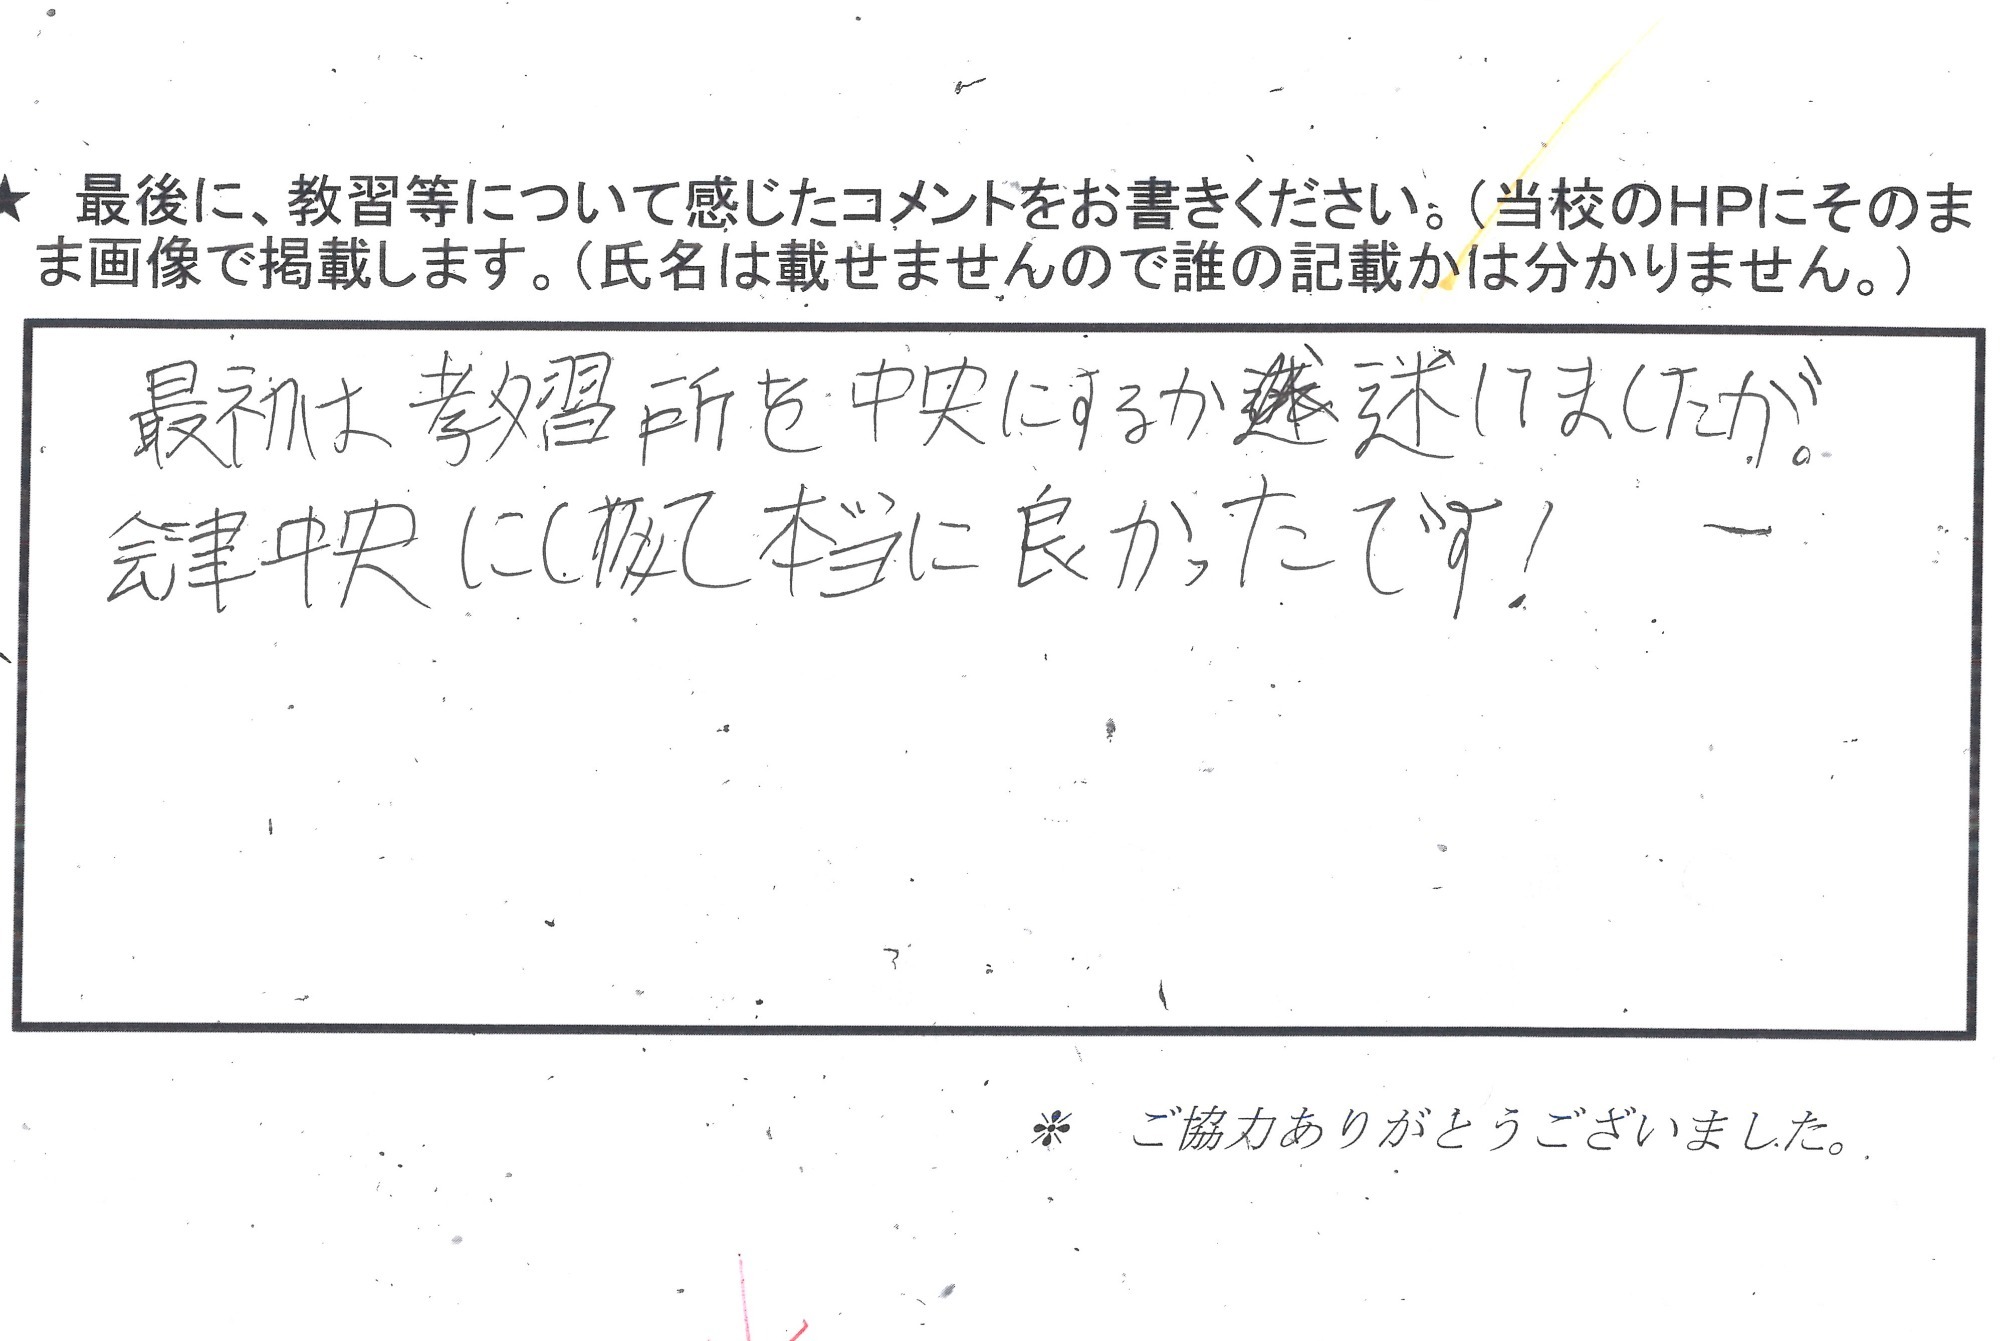 ★ 最後に、教習等について感じたコメントをお書きください。(当校のHPにそのま
ま画像で掲載します。(氏名は載せませんので誰の記載かは分かりません。)
最初は教習所を中央にするか迷ってましたが。
会津中央にして本当に良かったです!
※ ご協力ありがとうございました。